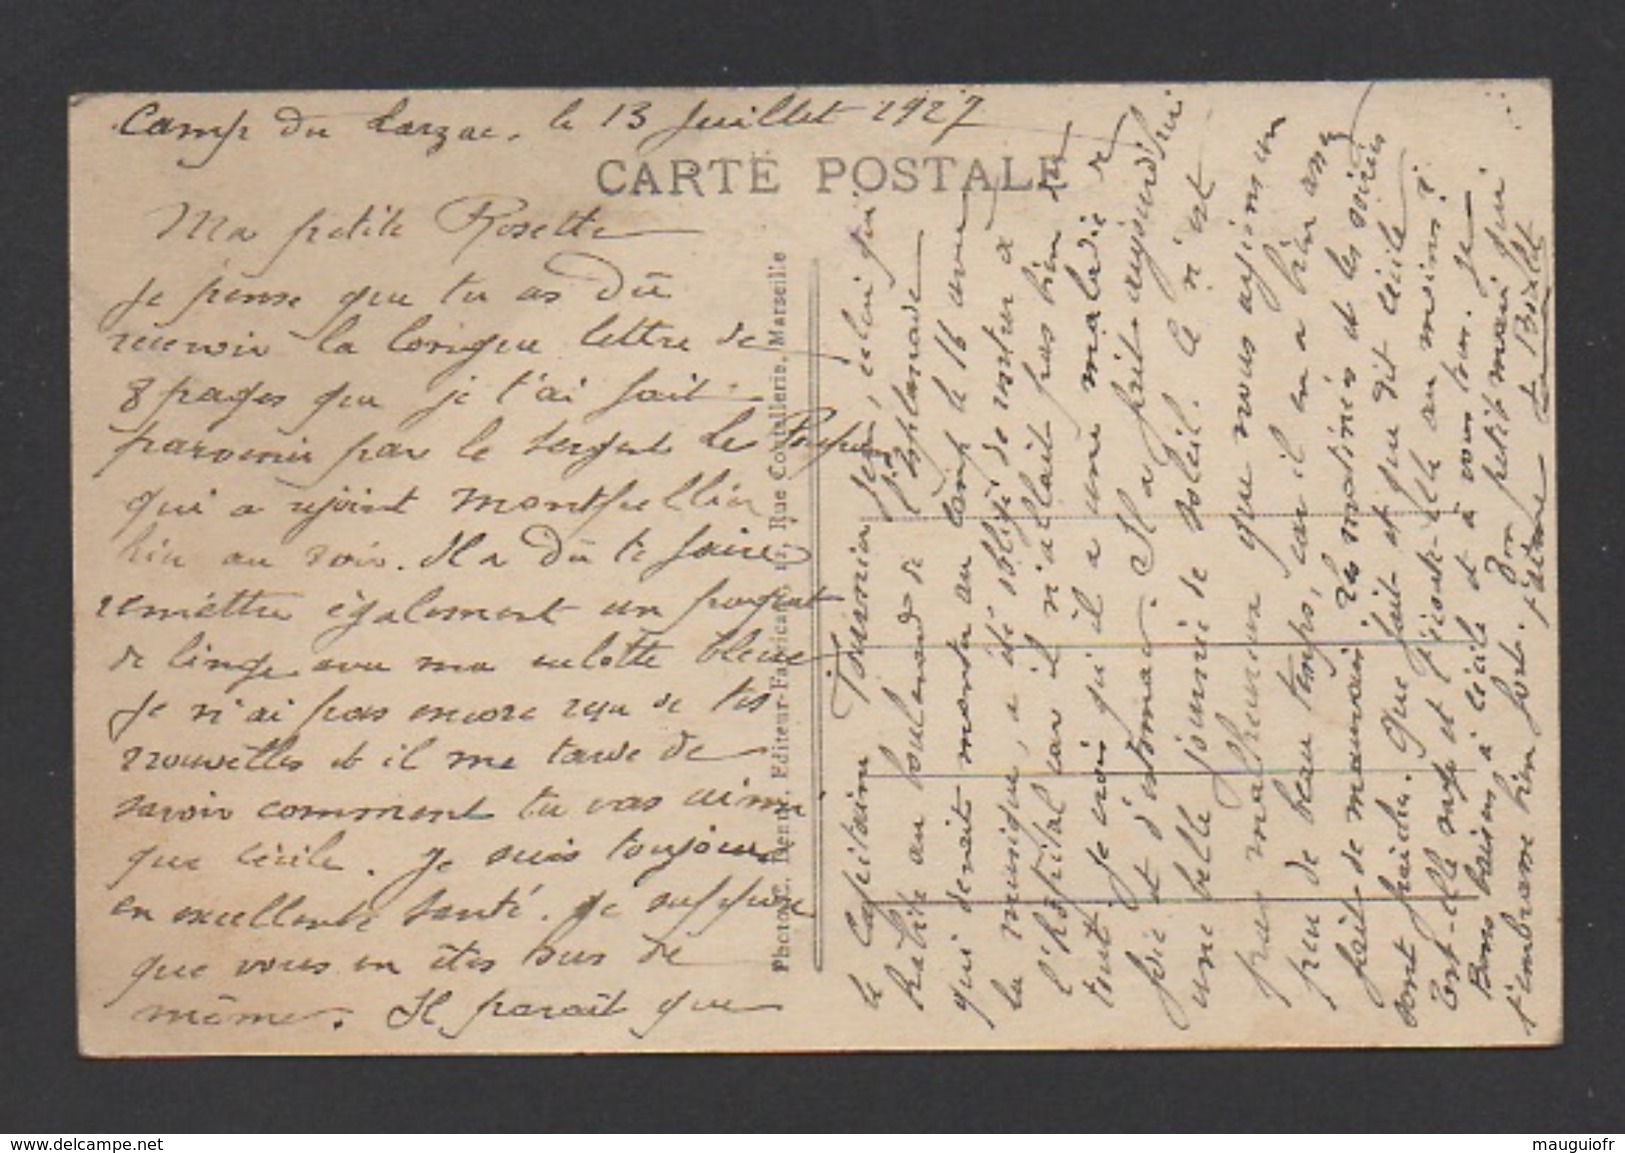 Camp du Larzac, le 13 Juillet 1927
CARTE POSTALE
Ma petite Rosette
Je pense que tu as dû
recevoir la longue lettre de
8 pages que je t'ai fait
parvenir par le sergent Le
qui a rejoint Montpellier
hier au soir. Il a dû te faire
remettre également un paquet
de linge avec ma culotte bleue
Je n'ai pas encore reçu de tes
nouvelles et il me tarde de
savoir comment tu vas ainsi
que Cécile. Je suis toujours
en excellente santé. Je suppose
que vous en êtes tous de
même. Il paraît que
Photo C. Henry, Editeur-Fabricant, Rue Coutellerie, Marseille
le Capitaine Tournier Jean, celui qui
habite au boulevard de l'Esplanade
qui devait monter au camp le 16 avec
la musique, a été obligé de rentrer à
l'hôpital car il n'allait pas bien du
tout. Je crois qu'il a une maladie de
foie et d'estomac. Il a fait aujourd'hui
une belle journée de soleil. Ce n'est
pas malheureux que nous ayions un
peu de beau temps, car il en a bien assez
fait de mauvais. Les matinées et les soirées
sont fraiches. Que fait et que dit Cécile
Est-elle sage et t'écoute-elle au moins ?
Bons baisers à Cécile et à vous tous. Je
t'embrasse bien fort. Ton petit mari qui
t'aime